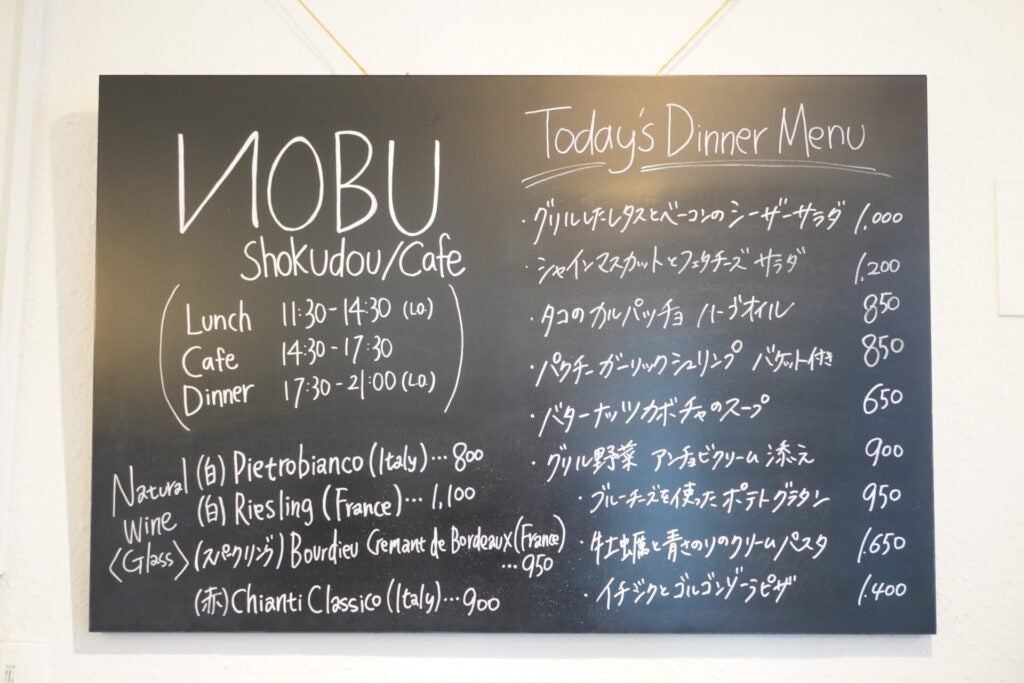 NOBU
Shokudou/Cafe
Lunch 11:30-14:30 (L.O.)
Cafe 14:30-17:30
Dinner 17:30-21:00 (L.O.)
Natural Wine <Glass>
(白) Pietrobianco (Italy)…800
(白) Riesling (France)…1,100
(スパークリング) Bourdieu Cremant de Bordeaux (France)
…950
(赤) Chianti Classico (Italy)…900
Today's Dinner Menu
・グリルしたレタスとベーコンのシーザーサラダ 1,000
・シャインマスカットとフェタチーズ サラダ 1,200
・タコのカルパッチョ ハーブオイル 850
・パクチー ガーリックシュリンプ バゲット付き 850
・バターナッツカボチャのスープ 650
・グリル野菜 アンチョビクリーム 添え 900
・ブルーチーズを使った ポテトグラタン 950
・牡蠣と青さのりのクリームパスタ 1,650
・イチジクとゴルゴンゾーラピザ 1,400